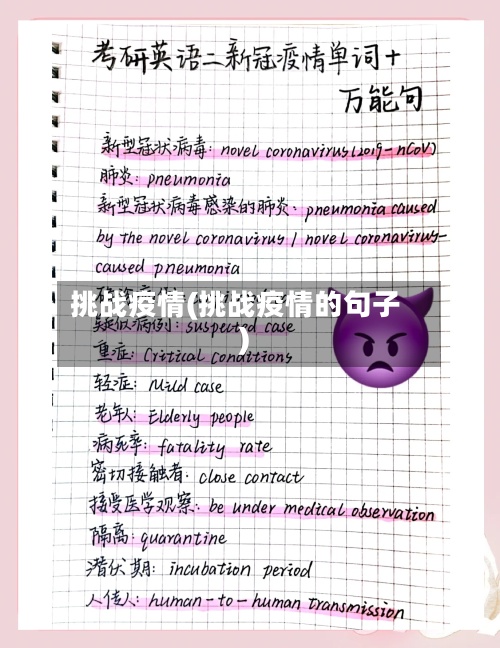 考研英语二新冠疫情单词+
万能句
新型冠状病毒: novel coronavirus(2019-nCoV)
肺炎: pneumonia
新型冠状病毒感染的肺炎: pneumonia caused
by the novel coronavirus / novel coronavirus-
caused pneumonia
挑战疫情(挑战疫情的句子
)
疑似病例: suspected case
重症: Critical conditions
轻症: Mild case
老年人: Elderly people
病死率: fatality rate
密切接触者: close contact
接受医学观察: be under medical observation
隔离: quarantine
潜伏期: incubation period
人传人: human-to-human transmission